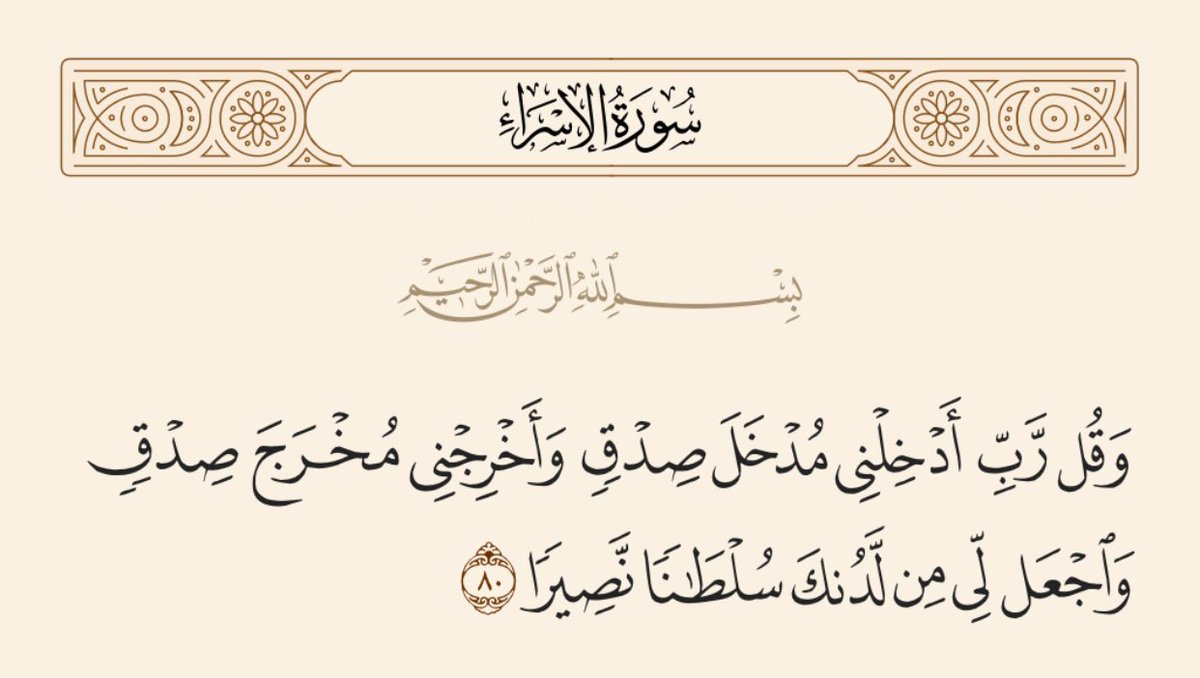 سُورَةُ الإِسْرَاءِ
بِسْمِ ٱللَّهِ ٱلرَّحْمَٰنِ ٱلرَّحِيمِ
وَقُل رَّبِّ أَدْخِلْنِى مُدْخَلَ صِدْقٍ وَأَخْرِجْنِى مُخْرَجَ صِدْقٍ
وَٱجْعَل لِّى مِن لَّدُنكَ سُلْطَٰنًا نَّصِيرًا ٨٠